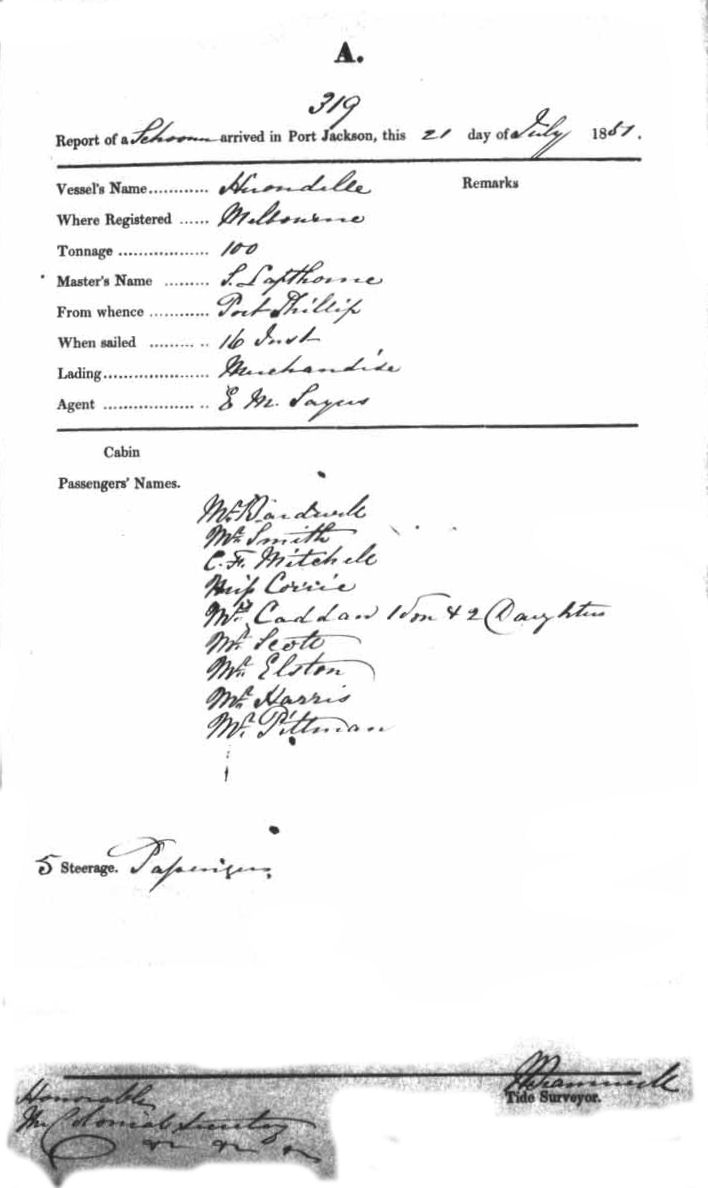 A.
319
Report of a Schooner arrived in Port Jackson, this 21 day of July 1851.
Vessel's Name ............ Hirondelle Remarks
Where Registered ...... Melbourne
Tonnage .................. 100
Master's Name ......... S. Lapthorne
From whence ............ Port Phillip
When sailed ......... .. 16 Inst
Lading..................... Merchandise
Agent ................... .. E M. Sayers
Cabin
Passengers' Names.
Mr. Bardwell
Mr. Smith
C. F. Mitchell
Miss Corrie
Mrs. Caddan 1 Son & 2 Daughters
Mr. Scott
Mr. Elston
Mr. Harris
Mr. Pittman
5 Steerage. Passengers
Honorable
The Colonial Secretary
Tide Surveyor.